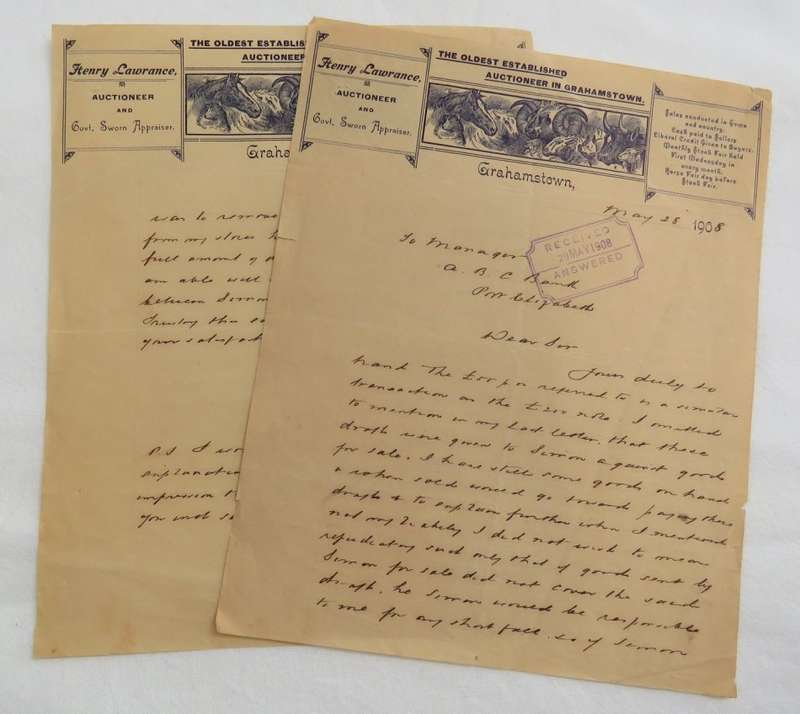 Henry Lawrance,
AUCTIONEER
AND
Govt. Sworn Appraiser.
THE OLDEST ESTABLISHED
AUCTIONEER
Graha
was to remove
from my stores
full amount of
am able will
between Simon
Trusting this
your satisfact
P.S I wo
explanation
impression
you will s
Henry Lawrance,
AUCTIONEER
AND
Govt. Sworn Appraiser.
THE OLDEST ESTABLISHED
AUCTIONEER IN GRAHAMSTOWN.
Sales conducted in town
and country.
Cash paid to Sellers
Liberal Credit Given to Buyers.
Monthly Stock Fair held
First Wednesday in
every month.
Horse Fair day before
Stock Fair.
Grahamstown,
May 28 1908
RECEIVED
29 MAY 1908
ANSWERED
To Manager
A. B. C Bank
Port Elizabeth
Dear Sir
Yours duly to
hand The referred to is a similar
transaction as the £200 note. I omitted
to mention in my last letter, that these
drafts were given to Simon against goods
for sale. I have still some goods on hand
& when sold would go toward paying these
drafts & to explain further when I mentioned
not my liability I did not wish to mean
repudiating said only that if goods sent by
Simon for sale did not cover the said
draft, he Simon would be responsible
to me for any short fall. so if Simon